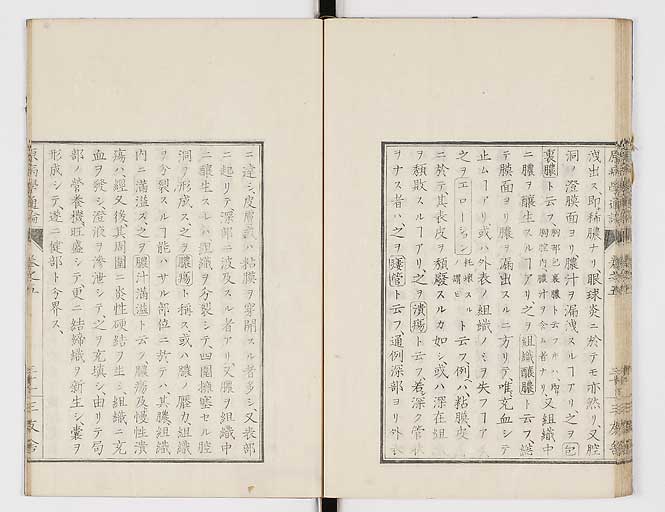 洩出ス、即稀膿ナリ眼球炎ニ於テモ亦然リ又腔
洞ノ澄膜面ヨリ膿汁ヲ漏洩スルヿアリ之ヲ包
裹膿ト云フ、胸部包裹膿ト云フハ胸腔内膿汁ヲ含ム者ナリ、又組織中
ニ膿ヲ醸生スルヿアリ、之ヲ組織醸膿ト云フ、総
テ膜面ヨリ膿ヲ漏出スルニ方リテ唯充血シテ
止ムヿアリ或ハ外表ノ組織ノミヲ失フヿアリ
之ヲエローション、耗壊スルノ謂ヒト云フ、例ハ粘膜、皮
ニ於テ其表皮ヲ頽廢スルカ如シ、或ハ深在組
ヲ頽敗スルヿアリ、之ヲ潰瘍ト云フ、若深ク管狀
ヲナス者ハ之ヲ瘻管ト云フ、通例深部ヨリ外
ニ達シ、皮膚或ハ粘膜ヲ穿開スル者多シ、又表部
ニ起リテ深部ニ波及スル者アリ又膿ヲ組織中
ニ醸生スレハ組織ヲ分裂シテ、四圍擁塞セル腔
洞ヲ形成ス之ヲ膿瘍ト稱ス、或ハ膿ノ膠力組織
ヲ分裂スルヿ能ハサル部位ニ於テハ其膿組織
内ニ滿溢ス之ヲ膿汁滿溢ト云フ、膿瘍及慢性潰
瘍ハ經久後其周圍ニ炎性硬結ヲ生シ組織ニ充
血ヲ發シ、澄液ヲ滲泄シテ、之ヲ充填シ、由リテ局
部ノ營養機旺盛シテ更ニ結締織ヲ新生シ囊ヲ
形成シテ、遂ニ健部ト分界ス、
原病學通論
卷之五
三友舍